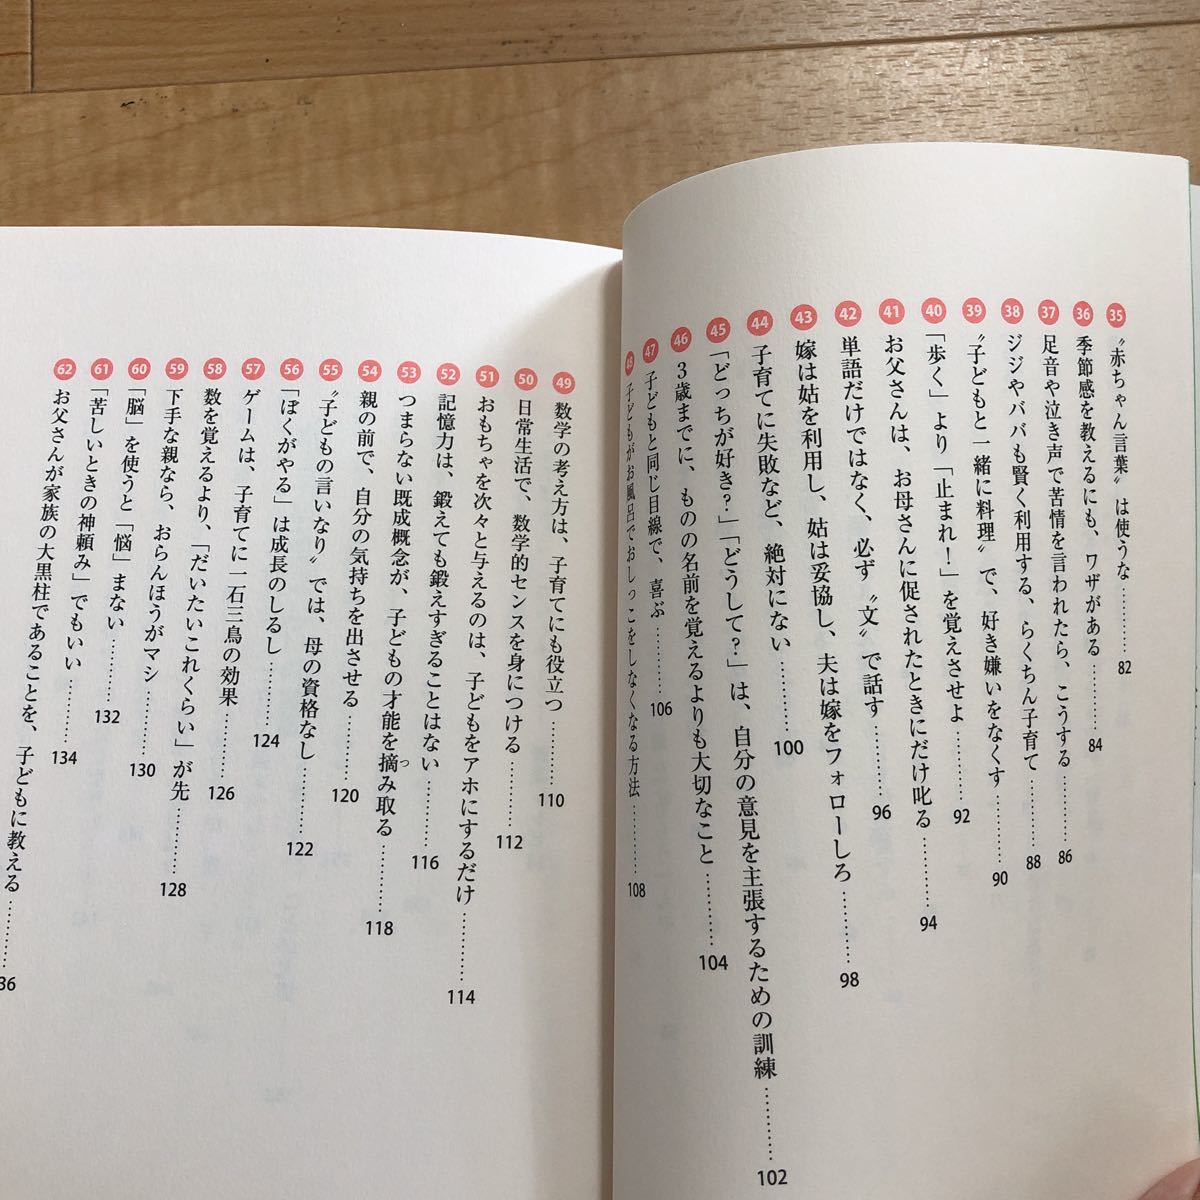 35 〝赤ちゃん言葉〟は使うな………82
36 季節感を教えるにも、ワザがある………84
37 足音や泣き声で苦情を言われたら、こうする………86
38 ジジやババも賢く利用する、らくちん子育て………88
39 〝子どもと一緒に料理〟で、好き嫌いをなくす………90
40 「歩く」より「止まれ!」を覚えさせよ………92
41 お父さんは、お母さんに促されたときにだけ叱る………94
42 単語だけではなく、必ず〝文〟で話す………96
43 嫁は姑を利用し、姑は妥協し、夫は嫁をフォローしろ………98
44 子育てに失敗など、絶対にない………100
45 「どっちが好き?」「どうして?」は、自分の意見を主張するための訓練………102
46 3歳までに、ものの名前を覚えるよりも大切なこと………104
47 子どもと同じ目線で、喜ぶ………106
48 子どもがお風呂でおしっこをしなくなる方法………108
49 数学の考え方は、子育てにも役立つ………110
50 日常生活で、数学的センスを身につける………112
51 おもちゃを次々と与えるのは、子どもをアホにするだけ………114
52 記憶力は、鍛えても鍛えすぎることはない………116
53 つまらない既成概念が、子どもの才能を摘み取る………118
つ
54 親の前で、自分の気持ちを出させる………120
55 〝子どもの言いなり〟では、母の資格なし………122
56 「ぼくがやる」は成長のしるし………124
57 ゲームは、子育てに一石三鳥の効果………126
58 数を覚えるより、「だいたいこれくらい」が先………128
59 下手な親なら、おらんほうがマシ………130
60 「脳」を使うと「悩」まない………132
61 「苦しいときの神頼み」でもいい………134
62 お父さんが家族の大黒柱であることを、子どもに教える………36